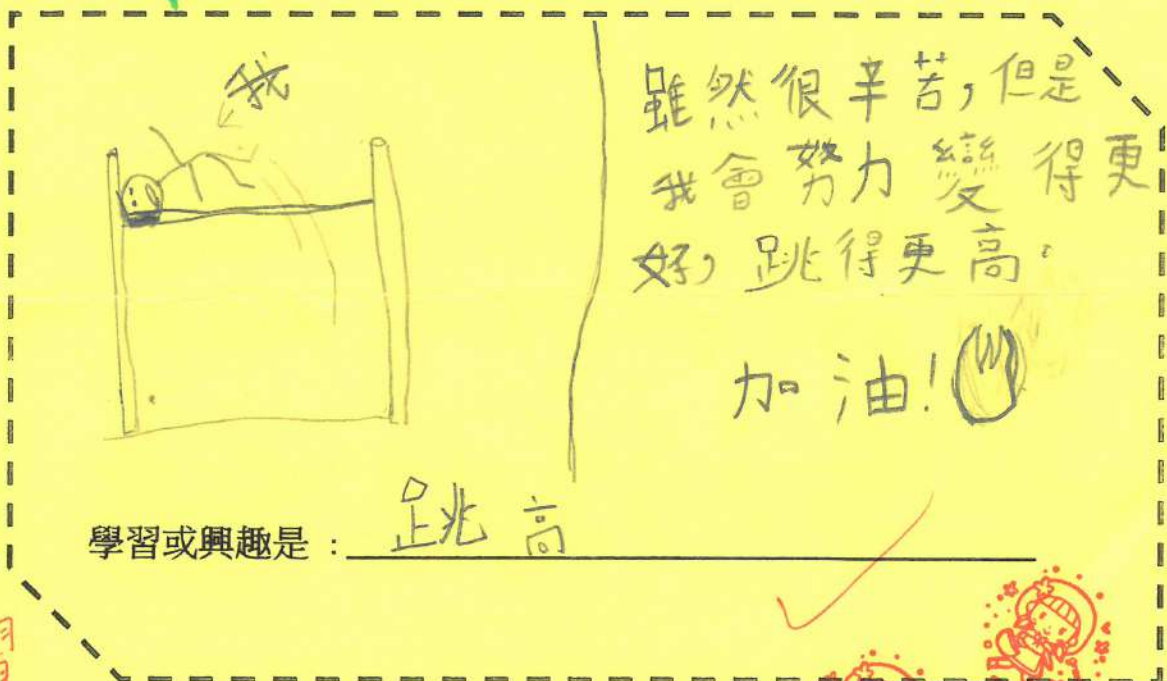 我
雖然很辛苦,但是
我會努力變得更
好,跳得更高.
加油!
學習或興趣是:跳高